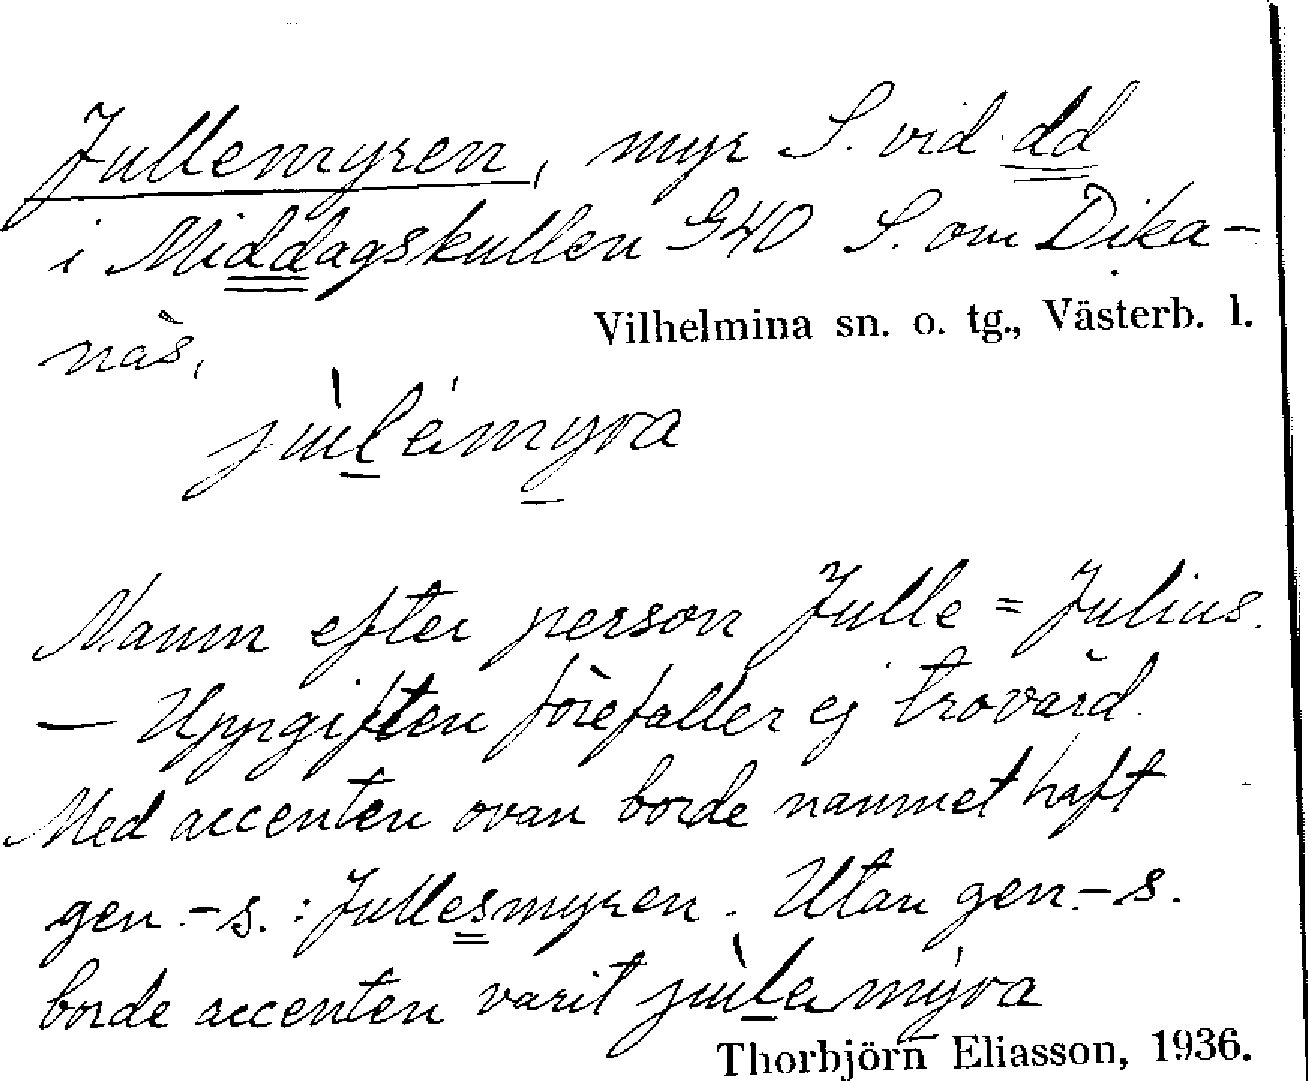 Jullemyren, myr S. vid dd
i Middagskullen 940 S. om Dika-
näs.
Vilhelmina sn. o. tg., Västerb. l.
Namn efter person Julle = Julius.
— Uppgiften förefaller ej trovärd.
Med accenten ovan borde namnet haft
gen.-s.: Jullesmyren. Utan gen.-s.
borde accenten varit
Thorbjörn Eliasson, 1936.